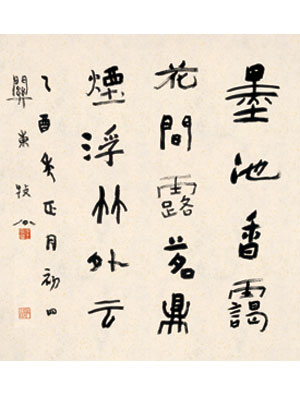 墨池香靄
花間露茗鼎
煙浮竹外云
乙酉年正月初四
關東